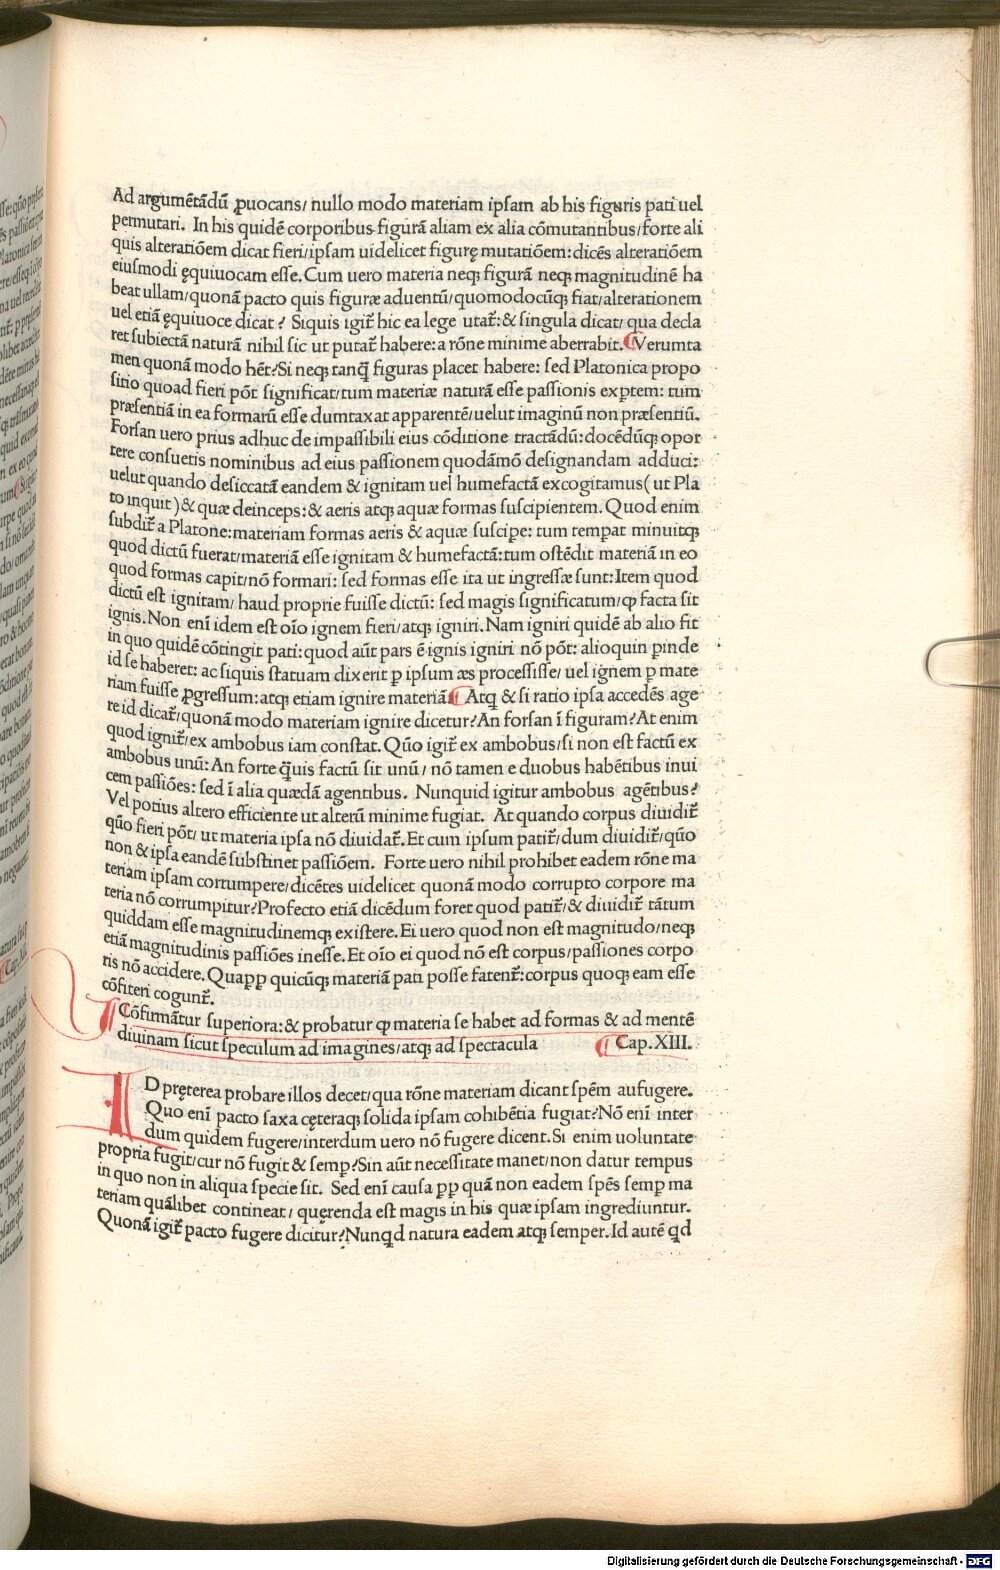 Ad argumētādū ꝓuocans/ nullo modo materiam ipſam ab his figuris pati uel
permutari. In his quidē corporibus figurā aliam ex alia cōmutantibus/forte ali
quis alteratiōem dicat fieri/ipſam uidelicet figurę mutatiōem: dicēs alteratiōem
eiuſmodi ęquiuocam eſſe. Cum uero materia neqꝫ figurā neqꝫ magnitudinē ha
beat ullam/quonā pacto quis figuræ aduentū/quomodocūqꝫ fiat/alterationem
uel etiā ęquiuoce dicat? Siquis igit᷑ hic ea lege utat᷑: & ſingula dicat/ qua decla
ret ſubiectā naturā nihil ſic ut putat᷑ habere: a rōne minime aberrabit. ¶ Verumta
men quonā modo hēt?Si neqꝫ tanq̄ figuras placet habere: ſed Platonica propo
ſitio quoad fieri pōt ſignificat/tum materiæ naturā eſſe paſſionis exꝑtem: tum
præſentiā in ea formarū eſſe dumtaxat apparentē/uelut imaginū non præſentiū.
Forſan uero prius adhuc de impaſſibili eius cōditione tractādū: docēdūqꝫ opor
tere conſuetis nominibus ad eius paſſionem quodāmō deſignandam adduci:
uelut quando deſiccatā eandem & ignitam uel humefactā excogitamus( ut Pla
to inquit ) & quæ deinceps: & aeris atqꝫ aquæ formas ſuſcipientem. Quod enim
ſubdit᷑ a Platone: materiam formas aeris & aquæ ſuſcipe: tum temꝑat minuitqꝫ
quod dictū fuerat/materiā eſſe ignitam & humefactā: tum oſtēdit materiā in eo
quod formas capit/nō formari: ſed formas eſſe ita ut ingreſſæ ſunt: Item quod
dictū eſt ignitam/ haud proprie fuiſſe dictū: ſed magis ſignificatum/ ꝙ facta ſit
ignis. Non enī idem eſt oīo ignem fieri/atqꝫ igniri. Nam igniri quidē ab alio fit
in quo quidē cōtingit pati: quod aūt pars ē ignis igniri nō pōt: alioquin ꝑinde
id ſe haberet: ac ſiquis ſtatuam dixerit ꝑ ipſum æs proceſſiſſe/ uel ignem ꝑ mate
riam fuiſſe ꝓgreſſum: atqꝫ etiam ignire materiā. ¶ Atqꝫ & ſi ratio ipſa accedēs age
re id dicat᷑/quonā modo materiam ignire dicetur?An forſan ī figuram?At enim
quod ignit᷑/ex ambobus iam conſtat. Qūo igit᷑ ex ambobus/ſi non eſt factū ex
ambobus unū: An forte q̄uis factū ſit unū/ nō tamen e duobus habētibus inui
cem paſſiōes: ſed ī alia quædā agentibus. Nunquid igitur ambobus agētibus?
Vel potius altero efficiente ut alterū minime fugiat. At quando corpus diuidit᷑
qūo fieri pōt/ ut materia ipſa nō diuidat᷑. Et cum ipſum patit᷑/dum diuidit᷑/qūo
non & ipſa eandē ſubſtinet paſſiōem. Forte uero nihil prohibet eadem rōne ma
teriam ipſam corrumpere/dicētes uidelicet quonā modo corrupto corpore ma
teria nō corrumpitur?Profecto etiā dicēdum foret quod patit᷑/& diuidit᷑ tātum
quiddam eſſe magnitudinemqꝫ exiſtere. Ei uero quod non eſt magnitudo/neqꝫ
etiā magnitudinis paſſiōes ineſſe. Et oīo ei quod nō eſt corpus/paſſiones corpo
ris nō accidere. Quaꝓꝑ quicūqꝫ materiā pati poſſe fatent᷑: corpus quoqꝫ eam eſſe
cōfiteri cogunt᷑.
¶ Cōfirmātur ſuperiora: & probatur ꝙ materia ſe habet ad formas & ad mentē
diuinam ſicut ſpeculum ad imagines/atqꝫ ad ſpectacula ¶ Cap. XIII.
AD pręterea probare illos decet/qua rōne materiam dicant ſpēm aufugere.
Quo enī pacto ſaxa cęteraqꝫ ſolida ipſam cohibētia fugiat?Nō enī inter
dum quidem fugere/interdum uero nō fugere dicent. Si enim uoluntate
propria fugit/cur nō fugit & ſemꝑ?Sin aūt neceſſitate manet/non datur tempus
in quo non in aliqua ſpecie ſit. Sed enī cauſa ꝓꝑ quā non eadem ſpēs ſemꝑ ma
teriam quālibet contineat/ quęrenda eſt magis in his quæ ipſam ingrediuntur.
Quonā igit᷑ pacto fugere dicitur?Nunqd natura eadem atqꝫ ſemper. Id autē qd
Digitalisierung gefördert durch die Deutsche Forschungsgemeinschaft - DFG